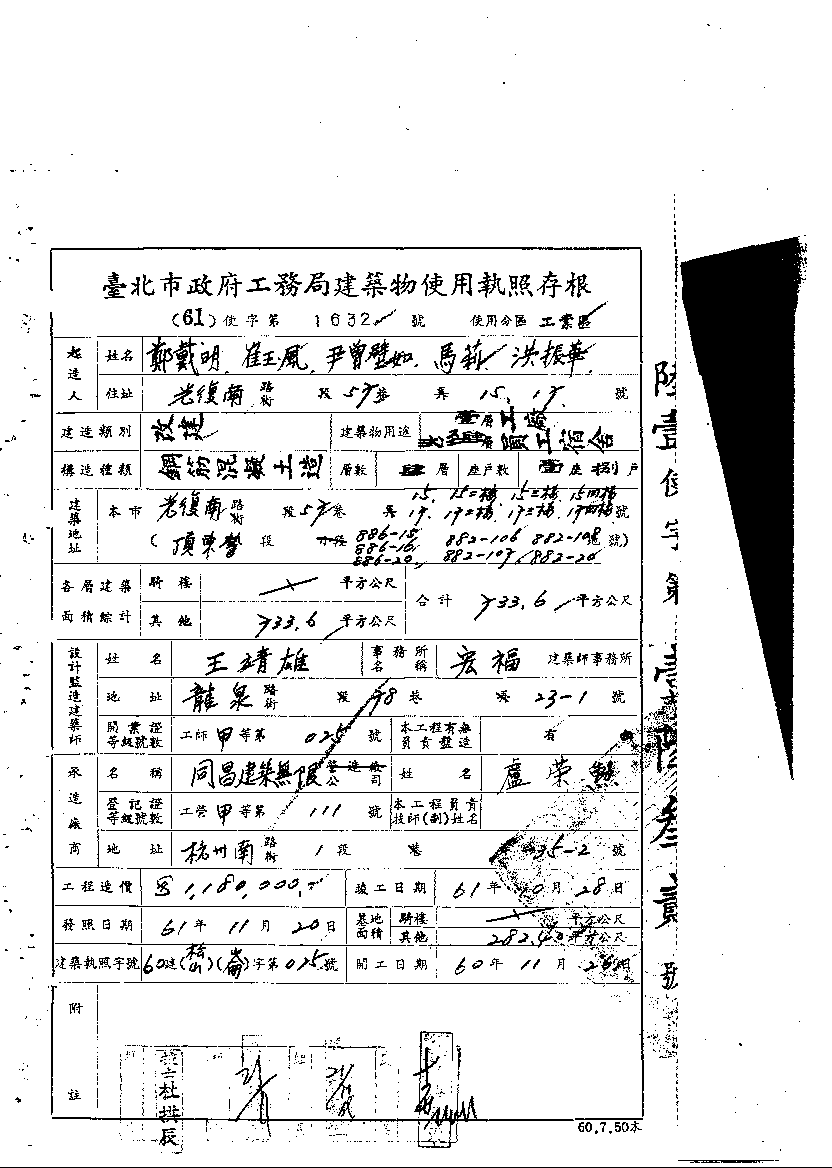 臺北市政府工務局建築物使用執照存根
(61) 使字第 1632 號 使用分區 工業區
起造人 姓名 鄭戴明、崔玉鳳、尹曾壁如、馬莉、洪振華
住址 光復南 路街 段 57巷 弄 15.17 號
建造類別 改建 建築物用途 壹層工廠 員工宿舍
構造種類 鋼筋混凝土造 層數 肆層 座戶數 壹座捌戶
建築地址 本市 光復南 路街 段57巷 弄 15. 15二樓 15三樓 15四樓 17. 17二樓 17三樓 17四樓號
(頂東勢 段 小段 886-15 886-16 886-20 882-106 882-107 882-108 882-20 地號)
各層建築面積綜計 騎樓 平方公尺
其他 733.6 平方公尺 合計 733.6 平方公尺
設計監造建築師 姓名 王靖雄 事務所名稱 宏福 建築師事務所
地址 龍泉 路街 段 78巷 弄 23-1 號
開業證等級號數 工師甲等第 025 號 本工程有無負責監造 有
承造廠商 名稱 同昌建築無限公司 姓名 盧榮
登記證等級號數 工營甲等第 111 號 本工程負責技師(副)姓名
地址 杭州南 路街 1段 巷 35-2 號
工程造價 1,180,000 竣工日期 61年10月28日
發照日期 61年11月20日 基地面積 騎樓 平方公尺
其他 282.40 平方公尺
建築執照字號 60建(松山)(崙)字第025號 開工日期 60年11月26日
附註
技士杜拱辰
60.7.50本
陸壹使字第壹陸叁貳號